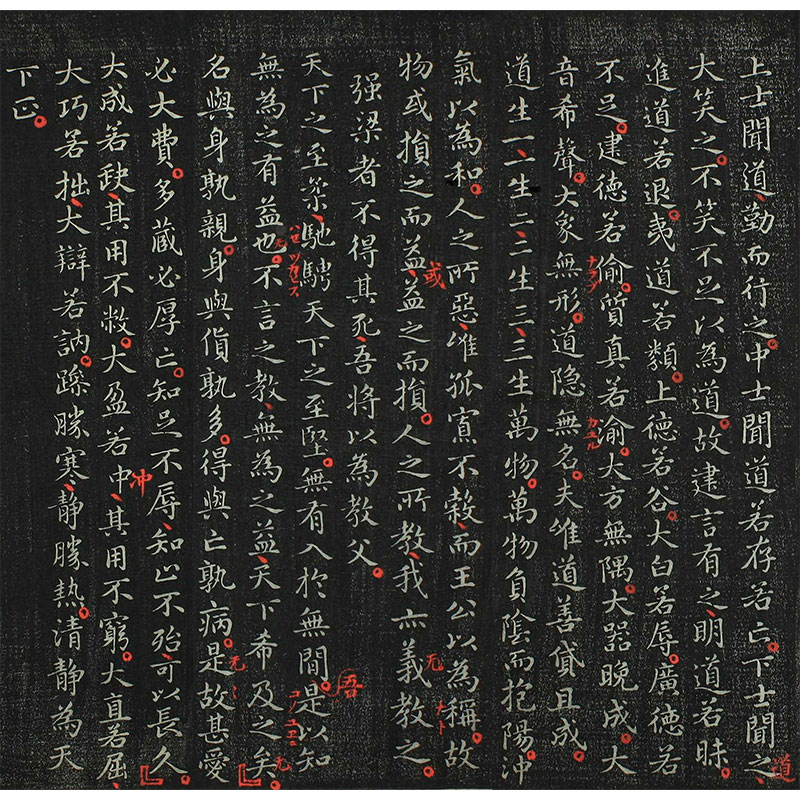 上士聞道勤而行之中士聞道若存若亡下士聞之
道
大笑之不笑不足以為道故建言有之明道若昧
進道若退夷道若類上德若谷大白若辱廣德若
不足建德若偷質真若渝大方無隅大器晚成大
音希聲大象無形道隐無名夫唯道善貸且成
道生一一生二二生三三生萬物萬物負陰而抱陽沖
氣以為和人之所惡唯孤寡不穀而王公以為稱故
物或損之而益益之而損人之所教我亦義教之
或
无
强梁者不得其死吾將以為教父
天下之至柔馳騁天下之至堅無有入於無間是以知
吾
無為之有益也不言之教無為之益天下希及之矣
无
名與身孰親身與貨孰多得與亡孰病是故甚愛
无
必大費多藏必厚亡知足不辱知止不殆可以長久
大成若缺其用不敝大盈若中其用不窮大直若屈
冲
大巧若拙大辯若訥躁勝寒靜勝熱清靜為天
下正